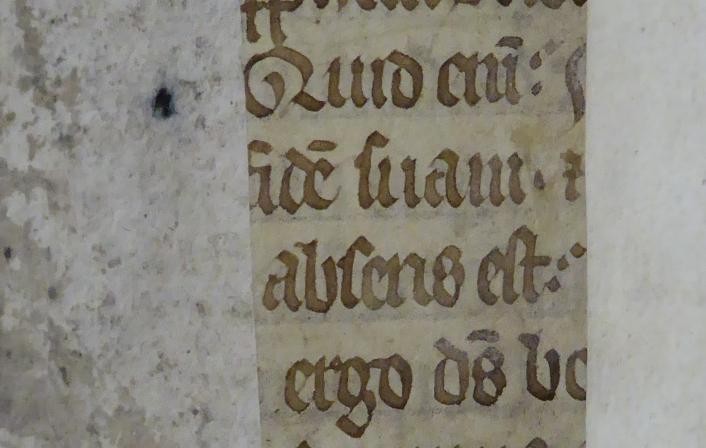 Quid eni͂:
fidē suam. ⁊
absens est:
ergo ds̄ bo